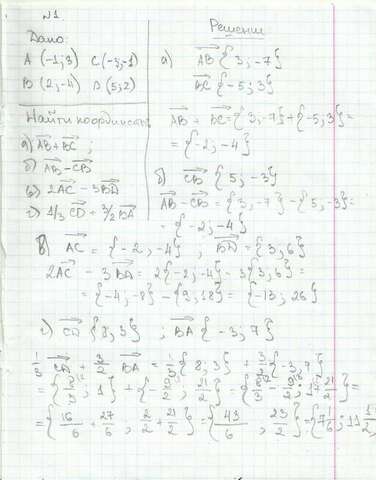 №1
Дано:
A (-1;3) C (-3;-1)
B (2;-4) D (5;2)
Найти координаты
а) AB + BC ;
б) AB - CB
в) 2AC - 3BD
г) 1/3 CD + 3/2 BA
Решение
а) AB {3;-7}
BC {-5;3}
AB + BC = {3;-7} + {-5;3} =
= {-2;-4}
б) CB {5;-3}
AB - CB = {3;-7} - {5;-3} =
= {-2;-4}
в) AC = {-2,-4} ; BD = {3;6}
2AC - 3BD = 2{-2;-4} - 3{3;6} =
= {-4;-8} - {9;18} = {-13;26}
г) CD {8;3} ; BA {-3;7}
1/3 CD + 3/2 BA = 1/3 {8;3} + 3/2 {-3;7}
= {8/3 ; 1} + {9/2 ; 21/2} =
= {16/6 + 27/6 ; 2/2 + 21/2} = {43/6 ; 23/2} = {7 1/6 ; 11 1/2}